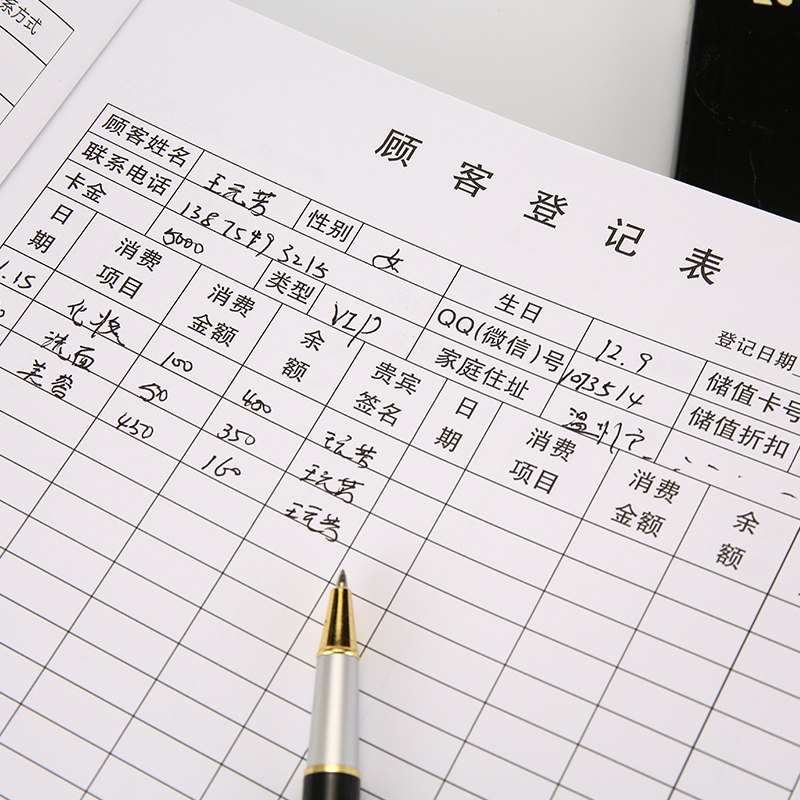 系方式
顾客登记表
登记日期
顾客姓名 王元芳 性别 女 生日 12.9 储值卡号
联系电话 13875493215 QQ(微信)号 1093514 储值折扣
卡金 5000 类型 VIP 家庭住址 温州市
日期 消费项目 消费金额 余额 贵宾签名 日期 消费项目 消费金额 余额
1.15 化妆 100 400 王元芳
洗面 50 350 王元芳
美容 450 160 王元芳